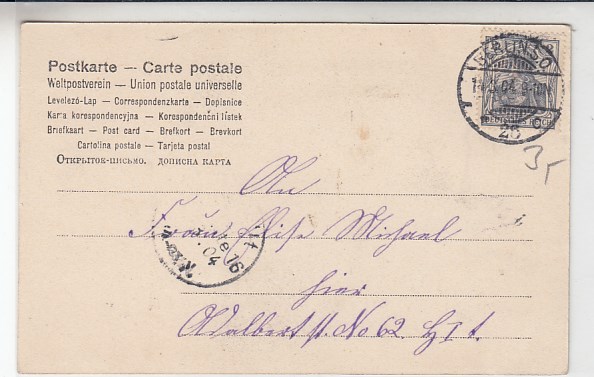 Postkarte — Carte postale
Weltpostverein — Union postale universelle
Levelező-Lap — Correspondenzkarte — Dopisnice
Karta korespondencyjna — Korespondenční lístek
Briefkaart — Post card — Brefkort — Brevkort
Cartolina postale — Tarjeta postal
Открытое-письмо. дописна карта
BERLIN S.O.
04. 9-10
26
3,-
An
Fräul. Elise Michael
16
04
hier
Adalbertst. No 62. H I t.